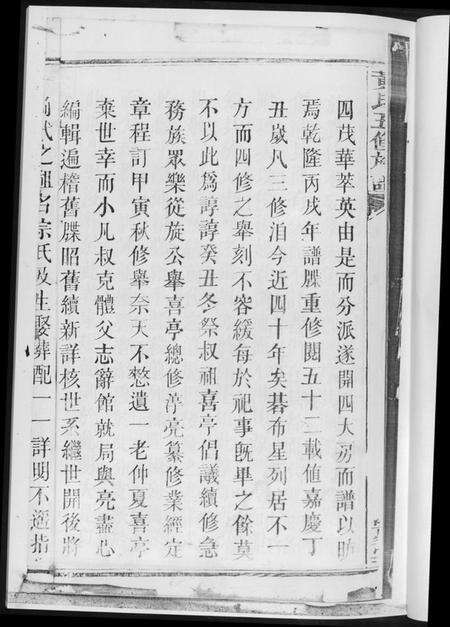 黃氏五修族譜
四茂華萃英由是而分派遂開四大房而譜以昉
焉乾隆丙戌年譜牒重修閱五十二載值嘉慶丁
丑歲凡三修洎今近四十年矣碁布星列居不一
方而四修之舉刻不容緩每於祀事旣畢之餘莫
不以此爲諄諄癸丑冬祭叔祖喜亭倡議續修急
務族眾樂從旋公舉喜亭總修淳亮纂修業經定
章程訂甲寅秋修舉奈天不憗遺一老仲夏喜亭
棄世幸而小凡叔克體父志辭館就局與亮盡心
編輯遍稽舊牒昭舊續新詳核世系繼世開後將
前代之諱名宗氏及生娶葬配一一詳明不遜指